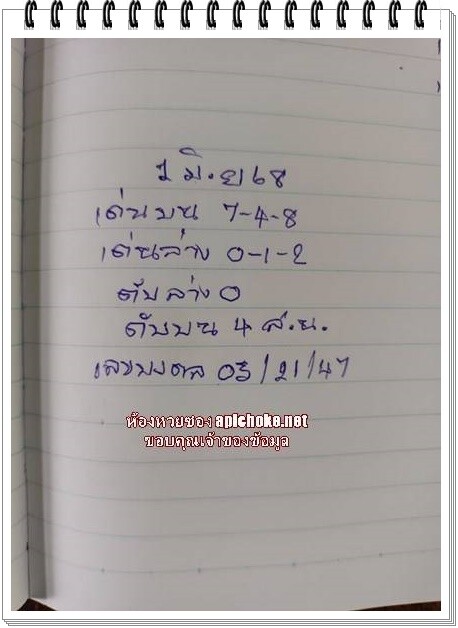 1 มิ.ย 68
เด่นบน 7-4-8
เด่นล่าง 0-1-2
ดับล่าง 0
ดับบน 4 ส.น.
เลขมงคล 03/21/47
ห้องหวยซอง apichoke.net
ขอบคุณเจ้าของข้อมูล